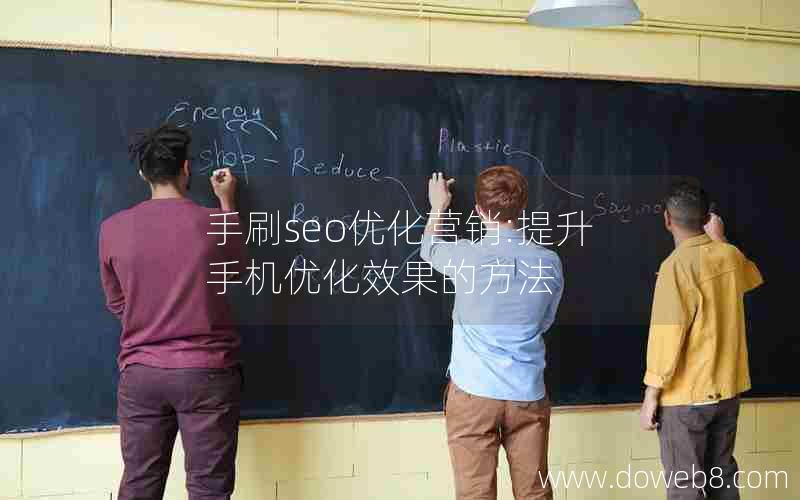 Energy
shop - Reduce
Plastic
手刷seo优化营销:提升
手机优化效果的方法
www.doweb8.com